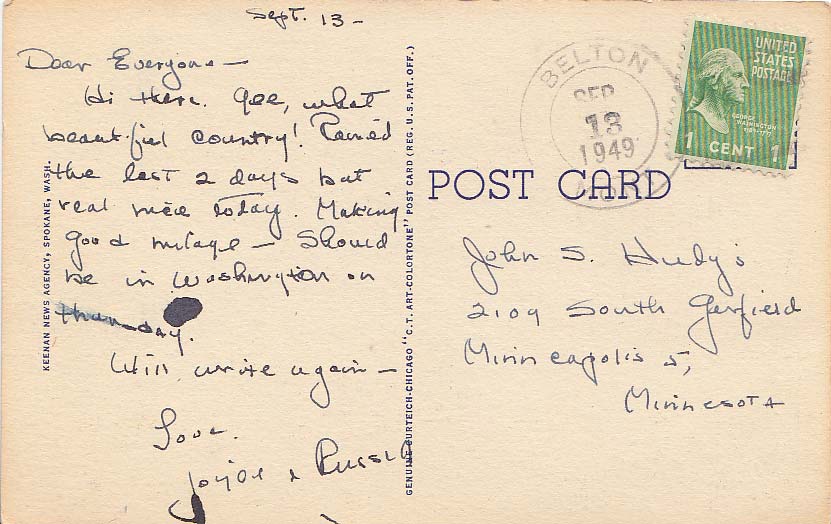 Sept. 13 -
Dear Everyone -
Hi there. Gee, what
beautiful country! Rained
the last 2 days but
real nice today. Making
good milage - Should
be in Washington on
thursday.
Will write again -
Love.
Joyce & Russell
KEENAN NEWS AGENCY, SPOKANE, WASH.
GENUINE CURTEICH-CHICAGO "C.T. ART-COLORTONE" POST CARD (REG. U.S. PAT. OFF.)
BELTON
SEP
13
1949
MONT
UNITED
STATES
POSTAGE
GEORGE
WASHINGTON
1789-1797
1 CENT 1
POST CARD
John S. Hudy's
2109 South Garfield
Minneapolis 5,
Minnesota